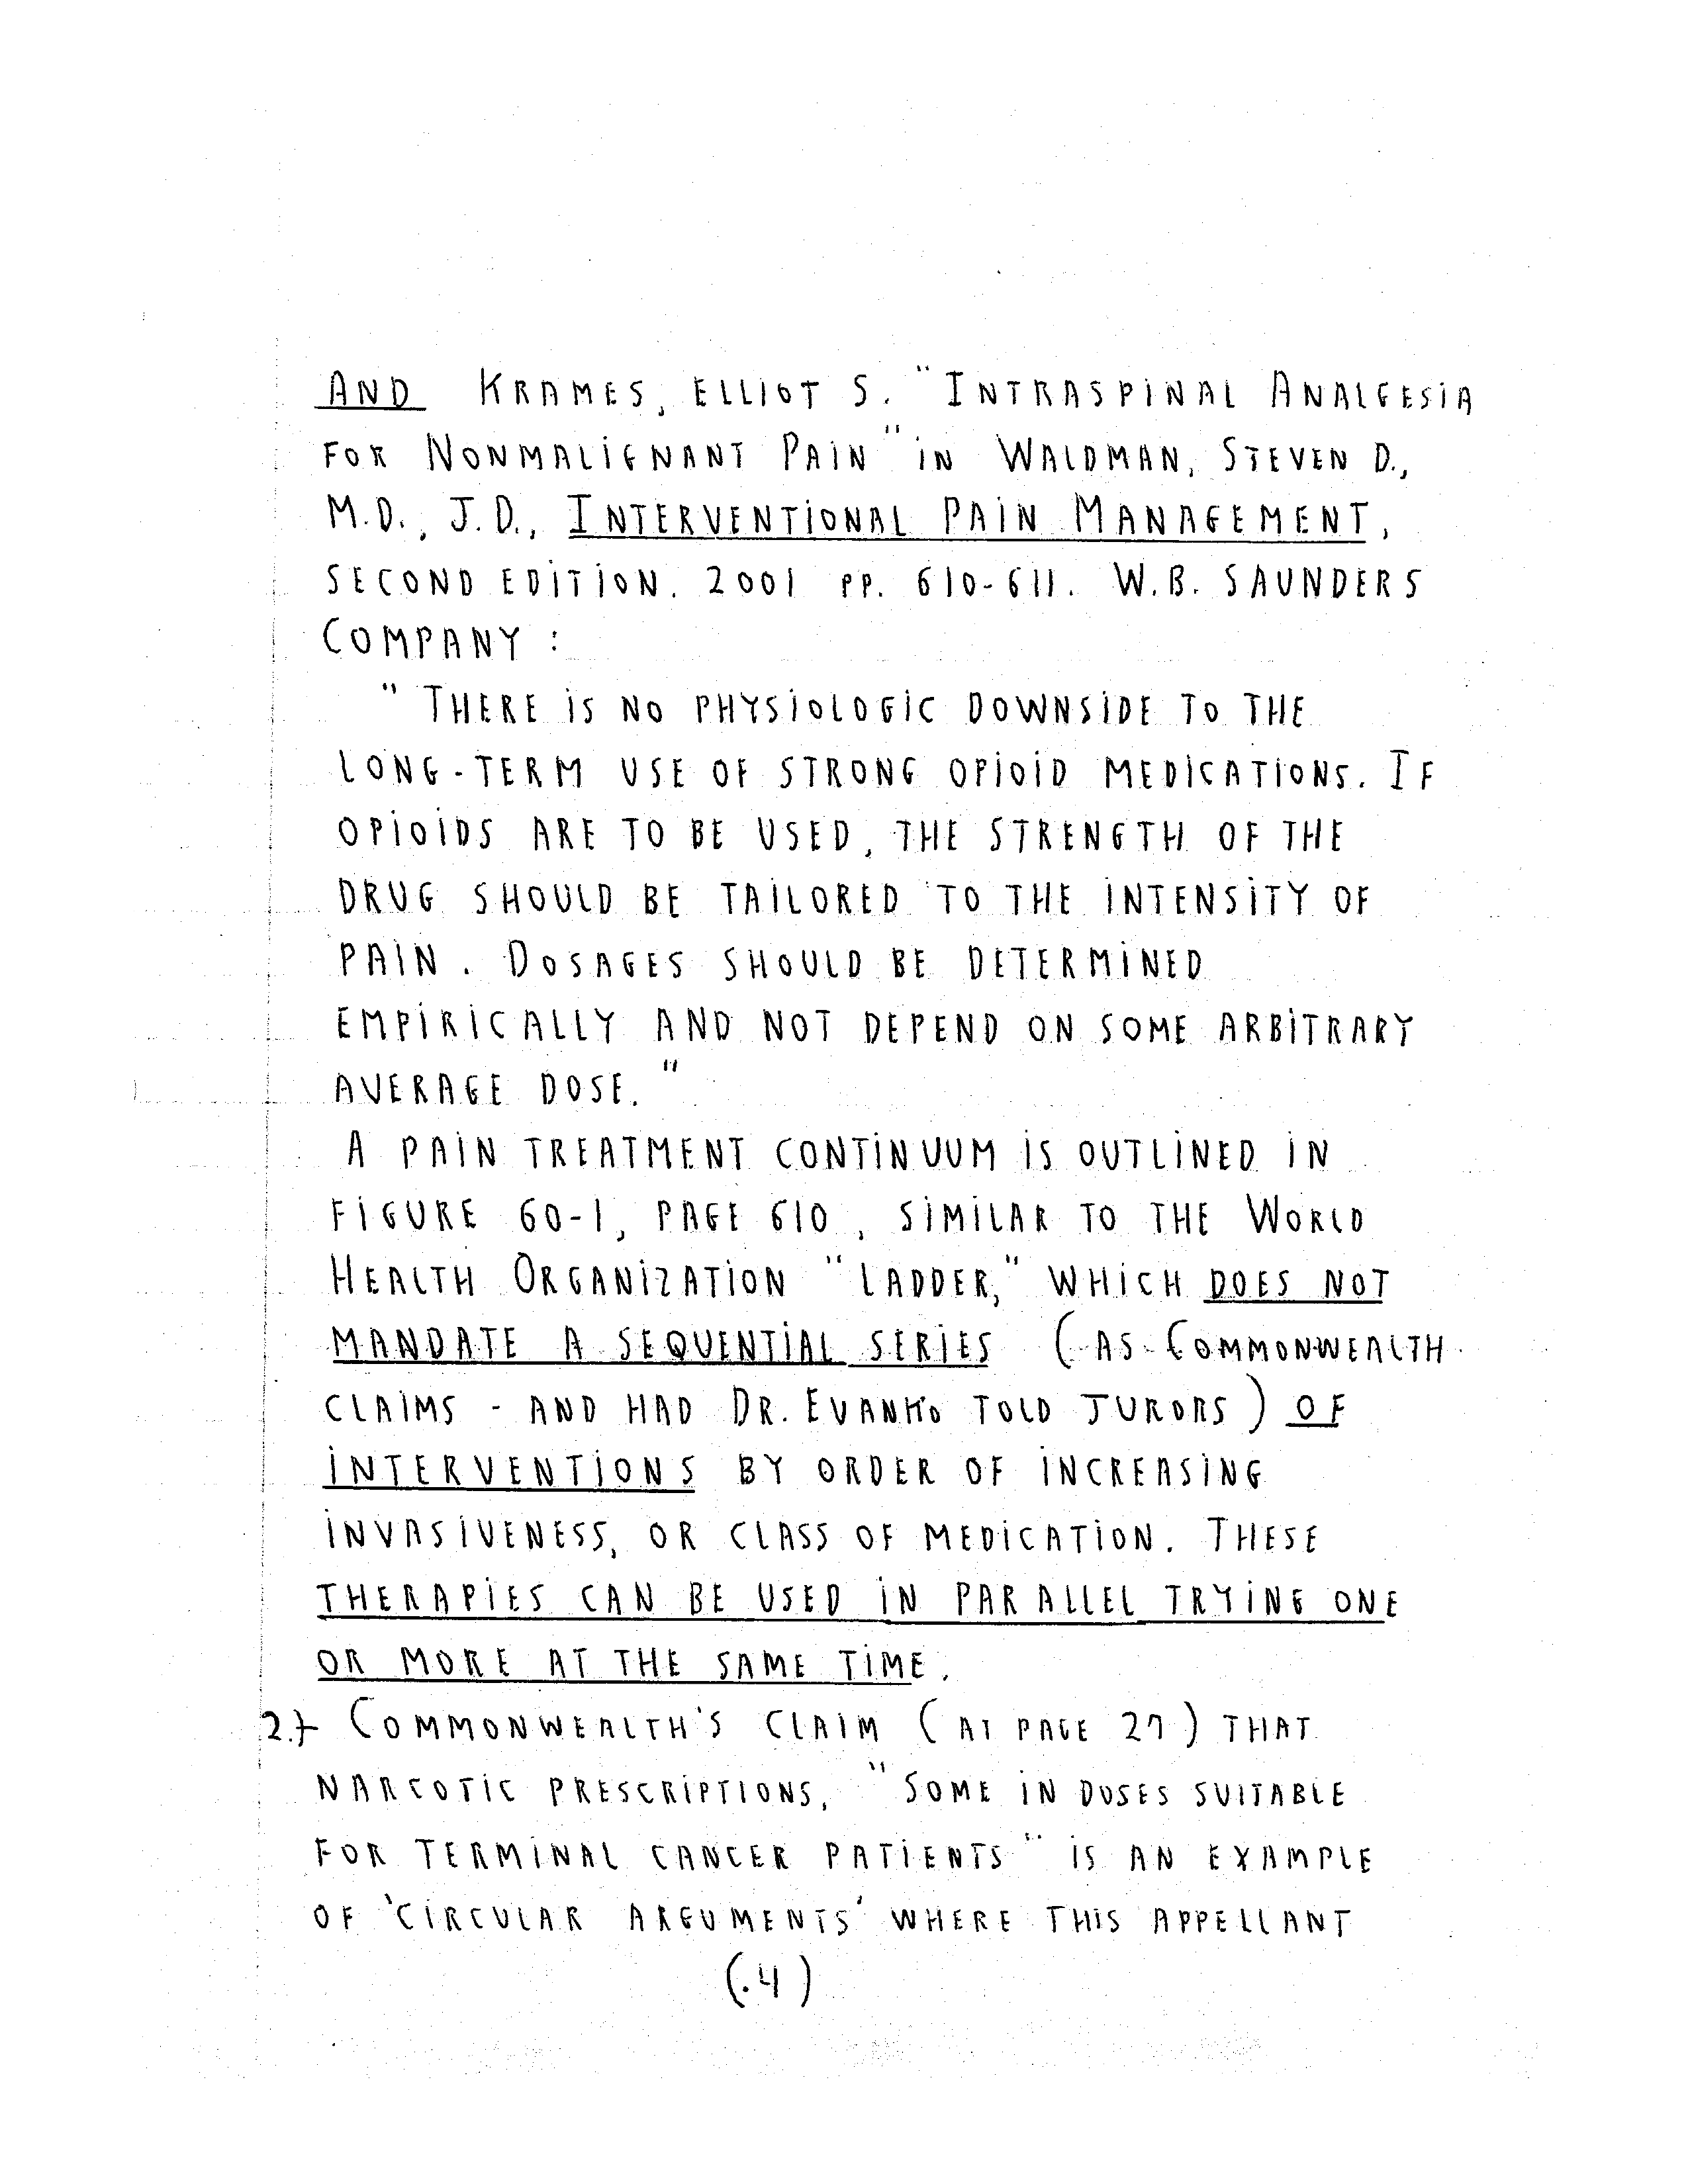 AND KRAMES, ELLIOT S. "INTRASPINAL ANALGESIA
FOR NONMALIGNANT PAIN" IN WALDMAN, STEVEN D.,
M.D., J.D., INTERVENTIONAL PAIN MANAGEMENT,
SECOND EDITION. 2001 PP. 610-611. W.B. SAUNDERS
COMPANY:
"THERE IS NO PHYSIOLOGIC DOWNSIDE TO THE
LONG-TERM USE OF STRONG OPIOID MEDICATIONS. IF
OPIOIDS ARE TO BE USED, THE STRENGTH OF THE
DRUG SHOULD BE TAILORED TO THE INTENSITY OF
PAIN. DOSAGES SHOULD BE DETERMINED
EMPIRICALLY AND NOT DEPEND ON SOME ARBITRARY
AVERAGE DOSE."
A PAIN TREATMENT CONTINUUM IS OUTLINED IN
FIGURE 60-1, PAGE 610, SIMILAR TO THE WORLD
HEALTH ORGANIZATION "LADDER," WHICH DOES NOT
MANDATE A SEQUENTIAL SERIES (AS COMMONWEALTH
CLAIMS - AND HAD DR. EVANKO TOLD JURORS) OF
INTERVENTIONS BY ORDER OF INCREASING
INVASIVENESS, OR CLASS OF MEDICATION. THESE
THERAPIES CAN BE USED IN PARALLEL TRYING ONE
OR MORE AT THE SAME TIME.
2.) COMMONWEALTH'S CLAIM (AT PAGE 27) THAT
NARCOTIC PRESCRIPTIONS, "SOME IN DOSES SUITABLE
FOR TERMINAL CANCER PATIENTS" IS AN EXAMPLE
OF 'CIRCULAR ARGUMENTS' WHERE THIS APPELLANT
(.4)